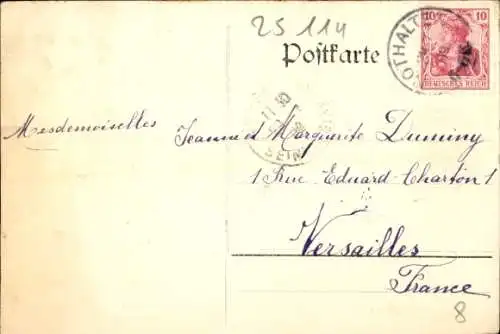 25 114
Postkarte
10 10
DEUTSCHES REICH
Mesdemoiselles Jeanne et Marguerite Duminy
1 Rue Eduard Charton 1
Versailles
France
8